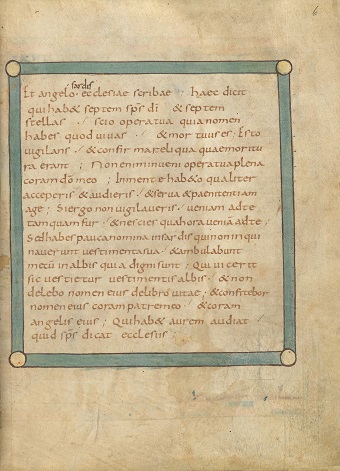 6
sardis
Et angelo · ecclesiae scribae ·/ haec dicit
qui hab& septem sps di ·/ & septem
stellas ·/ scio opera tua quia nomen
habes quod vivas ·/ & mortuus es; Esto
vigilans ·/ & confirma reliqua quae moritu
ra erant ; Non enim inveni opera tua plena
coram do meo ; In mente habe qualiter
acceperis & audieris ·/ & serva & paenitentiam
age ; Si ergo non vigilaveris ·/ veniam ad te
tamquam fur ·/ & nescies qua hora venia ad te ;
Sed habes pauca nomina in sardis qui non inqui
naverunt vestimenta sua ·/ & ambulabunt
mecu in albis quia digni sunt ; Qui vicerit
sic vestietur vestimentis albis ·/ & non
delebo nomen eius de libro vitae ; & confitebor
nomen eius coram patre meo ·/ & coram
angelis eius ; Qui hab& aurem audiat
quid sps dicat ecclesiis ·